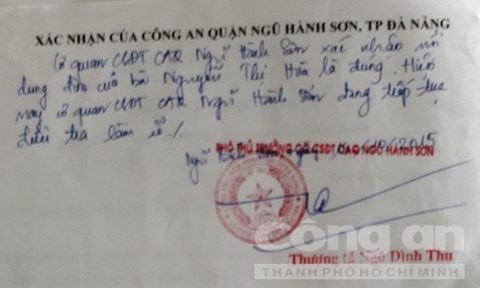 XÁC NHẬN CỦA CÔNG AN QUẬN NGŨ HÀNH SƠN, TP ĐÀ NẴNG
Cơ quan CSĐT CAQ. Ngũ Hành Sơn xác nhận nội
dung đơn của bà Nguyễn Thị Hoà là đúng. Hiện
nay cơ quan CSĐT CAQ Ngũ Hành Sơn đang tiếp tục
điều tra làm rõ ./.
Ngũ Hành Sơn, 2015
PHÓ THỦ TRƯỞNG CQ CSĐT CAQ NGŨ HÀNH SƠN
Công an
THÀNH PHỐ HỒ CHÍ MINH
Thượng tá Ngô Đình Thu